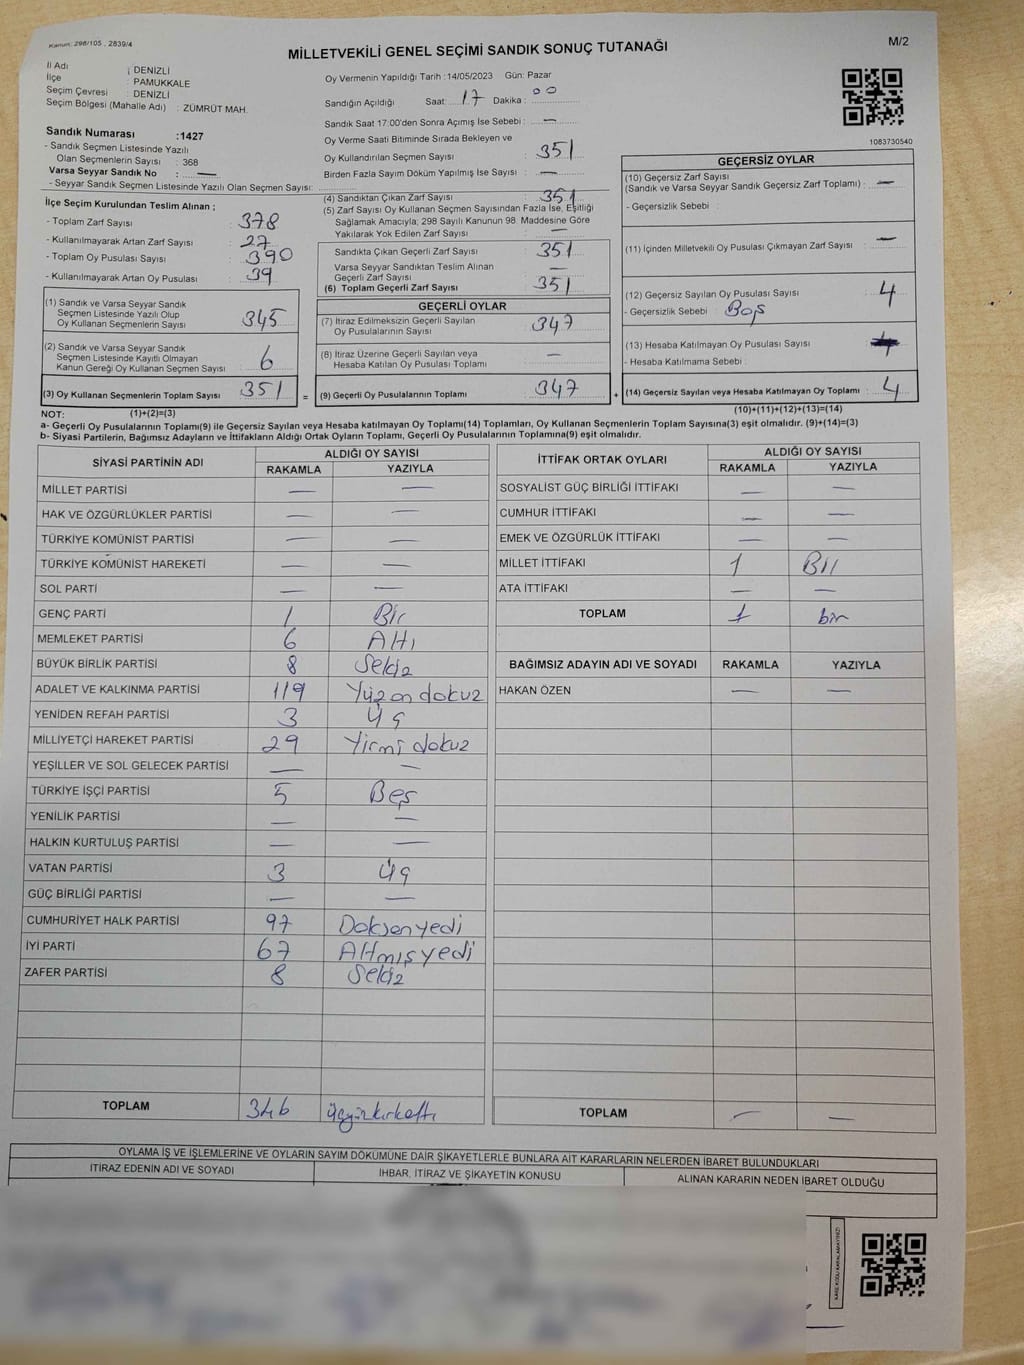 Kanun: 298/105 , 2839/4
M/2
MİLLETVEKİLİ GENEL SEÇİMİ SANDIK SONUÇ TUTANAĞI
İl Adı : DENİZLİ
İlçe : PAMUKKALE
Seçim Çevresi : DENİZLİ
Seçim Bölgesi (Mahalle Adı) : ZÜMRÜT MAH.
Sandık Numarası :1427
- Sandık Seçmen Listesinde Yazılı
Olan Seçmenlerin Sayısı : 368
Varsa Seyyar Sandık No : —
- Seyyar Sandık Seçmen Listesinde Yazılı Olan Seçmen Sayısı:
Oy Vermenin Yapıldığı Tarih :14/05/2023 Gün: Pazar
Sandığın Açıldığı Saat: 17 Dakika : 00
Sandık Saat 17:00'den Sonra Açımış İse Sebebi : —
Oy Verme Saati Bitiminde Sırada Bekleyen ve
Oy Kullandırılan Seçmen Sayısı : 351
Birden Fazla Sayım Döküm Yapılmış İse Sayısı : —
1083730540
İlçe Seçim Kurulundan Teslim Alınan ;
- Toplam Zarf Sayısı : 378
- Kullanılmayarak Artan Zarf Sayısı : 27
- Toplam Oy Pusulası Sayısı : 390
- Kullanılmayarak Artan Oy Pusulası : 39
(1) Sandık ve Varsa Seyyar Sandık
Seçmen Listesinde Yazılı Olup
Oy Kullanan Seçmenlerin Sayısı : 345
(2) Sandık ve Varsa Seyyar Sandık
Seçmen Listesinde Kayıtlı Olmayan
Kanun Gereği Oy Kullanan Seçmen Sayısı : 6
(3) Oy Kullanan Seçmenlerin Toplam Sayısı : 351 =
(4) Sandıktan Çıkan Zarf Sayısı : 351
(5) Zarf Sayısı Oy Kullanan Seçmen Sayısından Fazla İse, Eşitliği
Sağlamak Amacıyla; 298 Sayılı Kanunun 98. Maddesine Göre
Yakılarak Yok Edilen Zarf Sayısı : —
Sandıkta Çıkan Geçerli Zarf Sayısı : 351
Varsa Seyyar Sandıktan Teslim Alınan
Geçerli Zarf Sayısı : —
(6) Toplam Geçerli Zarf Sayısı : 351
GEÇERLİ OYLAR
(7) İtiraz Edilmeksizin Geçerli Sayılan
Oy Pusulalarının Sayısı : 347
(8) İtiraz Üzerine Geçerli Sayılan veya
Hesaba Katılan Oy Pusulası Toplamı : —
(9) Geçerli Oy Pusulalarının Toplamı : 347 +
GEÇERSİZ OYLAR
(10) Geçersiz Zarf Sayısı
(Sandık ve Varsa Seyyar Sandık Geçersiz Zarf Toplamı) : —
- Geçersizlik Sebebi :
(11) İçinden Milletvekili Oy Pusulası Çıkmayan Zarf Sayısı : —
(12) Geçersiz Sayılan Oy Pusulası Sayısı : 4
- Geçersizlik Sebebi : Boş
(13) Hesaba Katılmayan Oy Pusulası Sayısı :
- Hesaba Katılmama Sebebi :
(14) Geçersiz Sayılan veya Hesaba Katılmayan Oy Toplamı : 4
NOT: (1)+(2)=(3) (10)+(11)+(12)+(13)=(14)
a- Geçerli Oy Pusulalarının Toplamı(9) ile Geçersiz Sayılan veya Hesaba Katılmayan Oy Toplamı(14) Toplamları, Oy Kullanan Seçmenlerin Toplam Sayısına(3) eşit olmalıdır. (9)+(14)=(3)
b- Siyasi Partilerin, Bağımsız Adayların ve İttifakların Aldığı Ortak Oyların Toplamı, Geçerli Oy Pusulalarının Toplamına(9) eşit olmalıdır.
SİYASİ PARTİNİN ADI ALDIĞI OY SAYISI
RAKAMLA YAZIYLA
MİLLET PARTİSİ — —
HAK VE ÖZGÜRLÜKLER PARTİSİ — —
TÜRKİYE KOMÜNİST PARTİSİ — —
TÜRKİYE KOMÜNİST HAREKETİ — —
SOL PARTİ — —
GENÇ PARTİ 1 Bir
MEMLEKET PARTİSİ 6 Altı
BÜYÜK BİRLİK PARTİSİ 8 Sekiz
ADALET VE KALKINMA PARTİSİ 119 Yüzon dokuz
YENİDEN REFAH PARTİSİ 3 Üç
MİLLİYETÇİ HAREKET PARTİSİ 29 Yirmi dokuz
YEŞİLLER VE SOL GELECEK PARTİSİ — —
TÜRKİYE İŞÇİ PARTİSİ 5 Beş
YENİLİK PARTİSİ — —
HALKIN KURTULUŞ PARTİSİ — —
VATAN PARTİSİ 3 Üç
GÜÇ BİRLİĞİ PARTİSİ — —
CUMHURİYET HALK PARTİSİ 97 Doksanyedi
İYİ PARTİ 67 Altmışyedi
ZAFER PARTİSİ 8 Sekiz
TOPLAM 346 üçyüzkırkaltı
İTTİFAK ORTAK OYLARI ALDIĞI OY SAYISI
RAKAMLA YAZIYLA
SOSYALİST GÜÇ BİRLİĞİ İTTİFAKI — —
CUMHUR İTTİFAKI — —
EMEK VE ÖZGÜRLÜK İTTİFAKI — —
MİLLET İTTİFAKI 1 Bir
ATA İTTİFAKI — —
TOPLAM 1 bir
BAĞIMSIZ ADAYIN ADI VE SOYADI RAKAMLA YAZIYLA
HAKAN ÖZEN — —
TOPLAM — —
OYLAMA İŞ VE İŞLEMLERİNE VE OYLARIN SAYIM DÖKÜMÜNE DAİR ŞİKAYETLERLE BUNLARA AİT KARARLARIN NELERDEN İBARET BULUNDUKLARI
İTİRAZ EDENİN ADI VE SOYADI İHBAR, İTİRAZ VE ŞİKAYETİN KONUSU ALINAN KARARIN NEDEN İBARET OLDUĞU